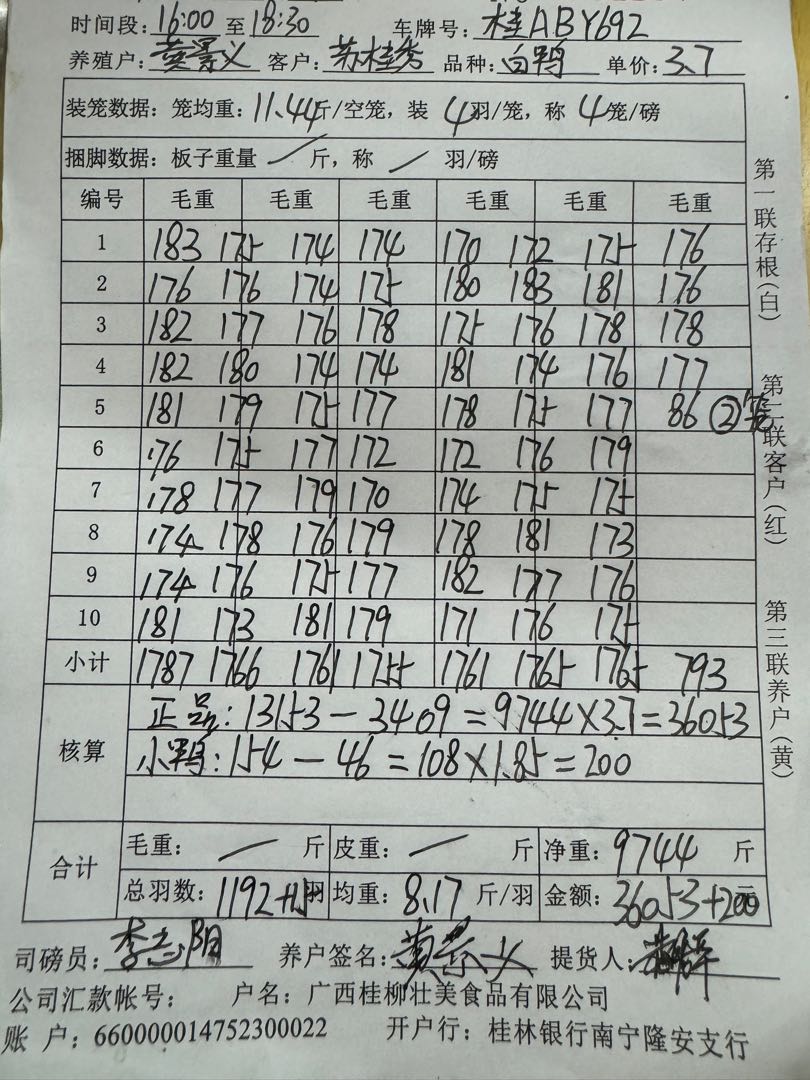 时间段:16:00至18:30 车牌号:桂ABY692
养殖户:黄景义 客户:苏桂秀 品种:白鸭 单价:3.7
装笼数据:笼均重:11.44斤/空笼,装4羽/笼,称4笼/磅
捆脚数据:板子重量/斤,称/羽/磅
编号 毛重 毛重 毛重 毛重 毛重 毛重
1 183 175 174 174 170 172 175 176
2 176 176 174 175 180 183 181 176
3 182 177 176 178 175 176 178 178
4 182 180 174 174 181 174 176 177
5 181 179 175 177 178 175 177 86 ②笼
6 176 175 177 172 172 176 179
7 178 177 179 170 174 175 175
8 174 178 176 179 178 181 173
9 174 176 175 177 182 177 176
10 181 173 181 179 171 176 175
小计 1787 1766 1761 1755 1761 1765 1765 793
核算 正品:13153-3409=9744×3.7=36053
小鸭:154-46=108×1.85=200
合计 毛重:/斤 皮重:/斤 净重:9744斤
总羽数:1192+15羽 均重:8.17斤/羽 金额:36053+200元
司磅员:李志阳 养户签名:黄景义 提货人:
公司汇款帐号: 户名:广西桂柳壮美食品有限公司
账户:660000014752300022 开户行:桂林银行南宁隆安支行
第一联存根(白) 第二联客户(红) 第三联养户(黄)